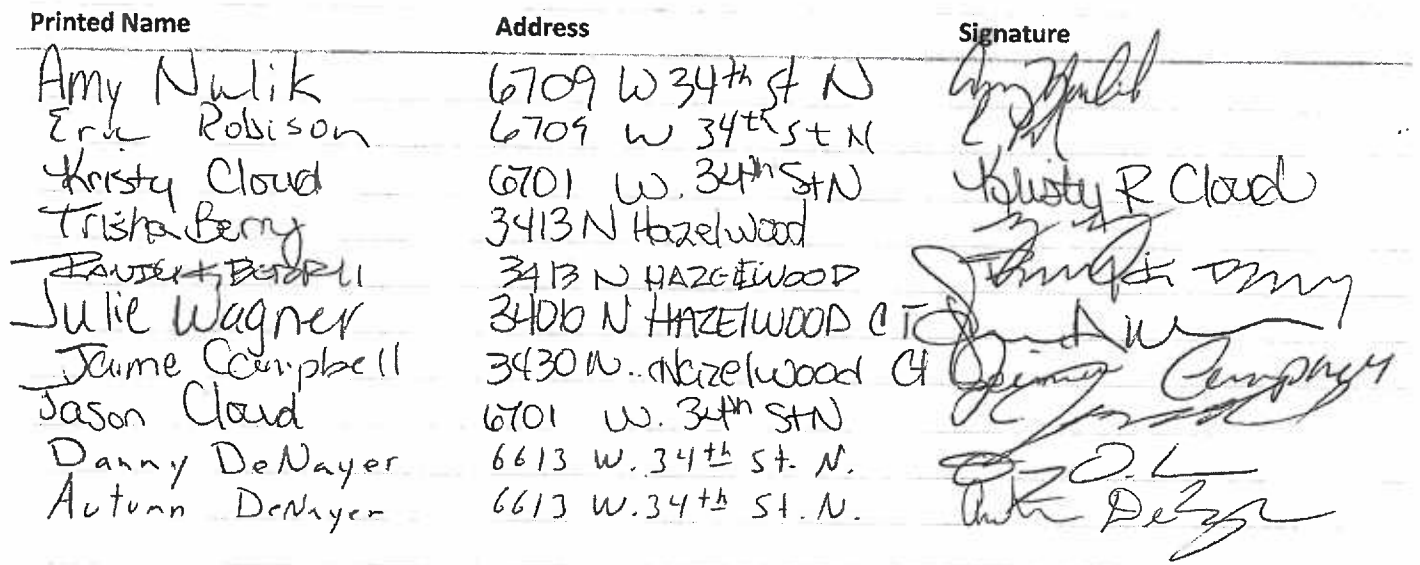 Printed Name Address Signature
Amy Nulik 6709 W 34th St N Amy Nulik
Eric Robison 6709 W 34th St N
Kristy Cloud 6701 W. 34th St N Kristy R Cloud
Trisha Berry 3413 N Hazelwood
3413 N HAZELWOOD
Julie Wagner 3406 N HAZELWOOD CT
Jaime Campbell 3430 N. Hazelwood Ct
Jason Cloud 6701 W. 34th St N
Danny DeNayer 6613 W. 34th St. N.
Autumn DeNayer 6613 W. 34th St. N.